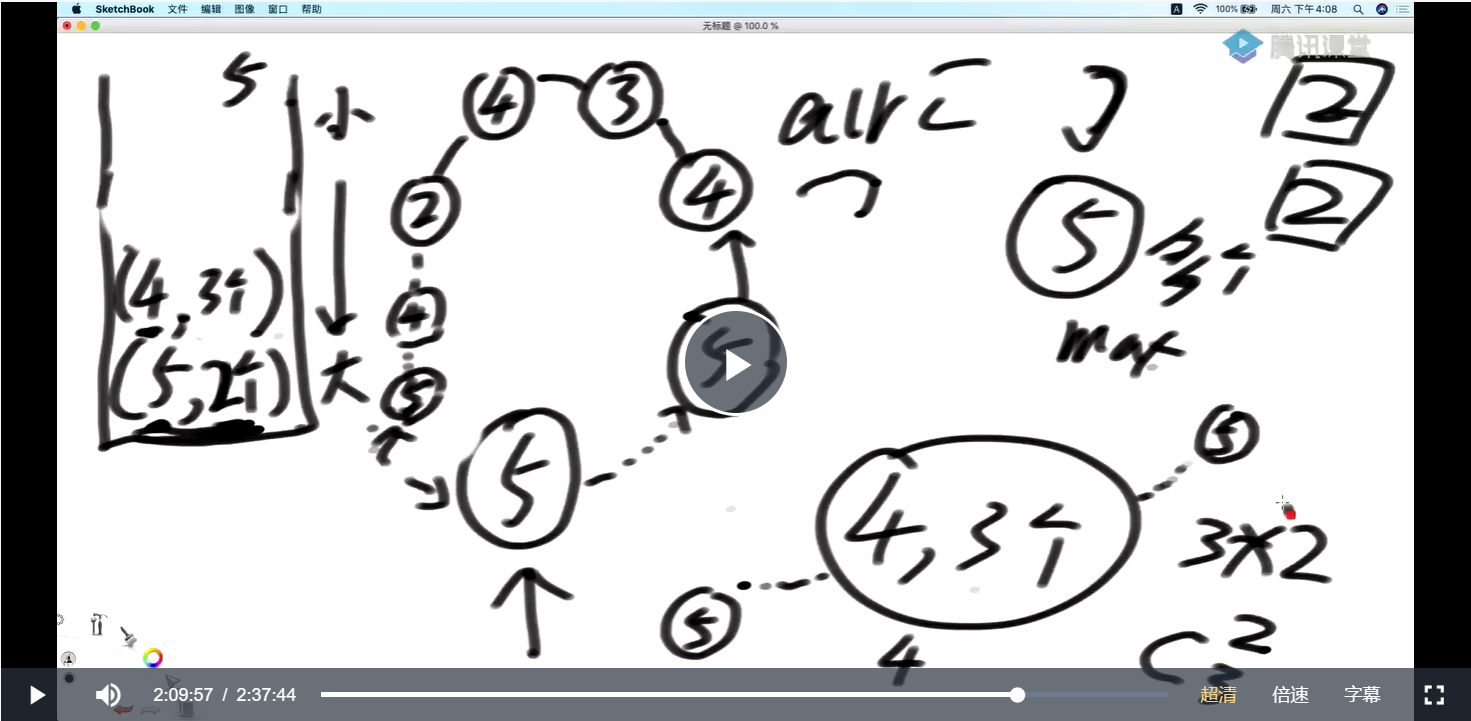 SketchBook 文件 编辑 图像 窗口 帮助
A 100% 周六 下午4:08
无标题 @ 100.0 %
腾讯课堂
5
小
大
(4,3个)
(5,2个)
4
3
2
4
4
5
5
5
arr [ ]
2
2
5
3个
max
4,3个
5
5
4
3×2
C 2
2:09:57 / 2:37:44
超清 倍速 字幕